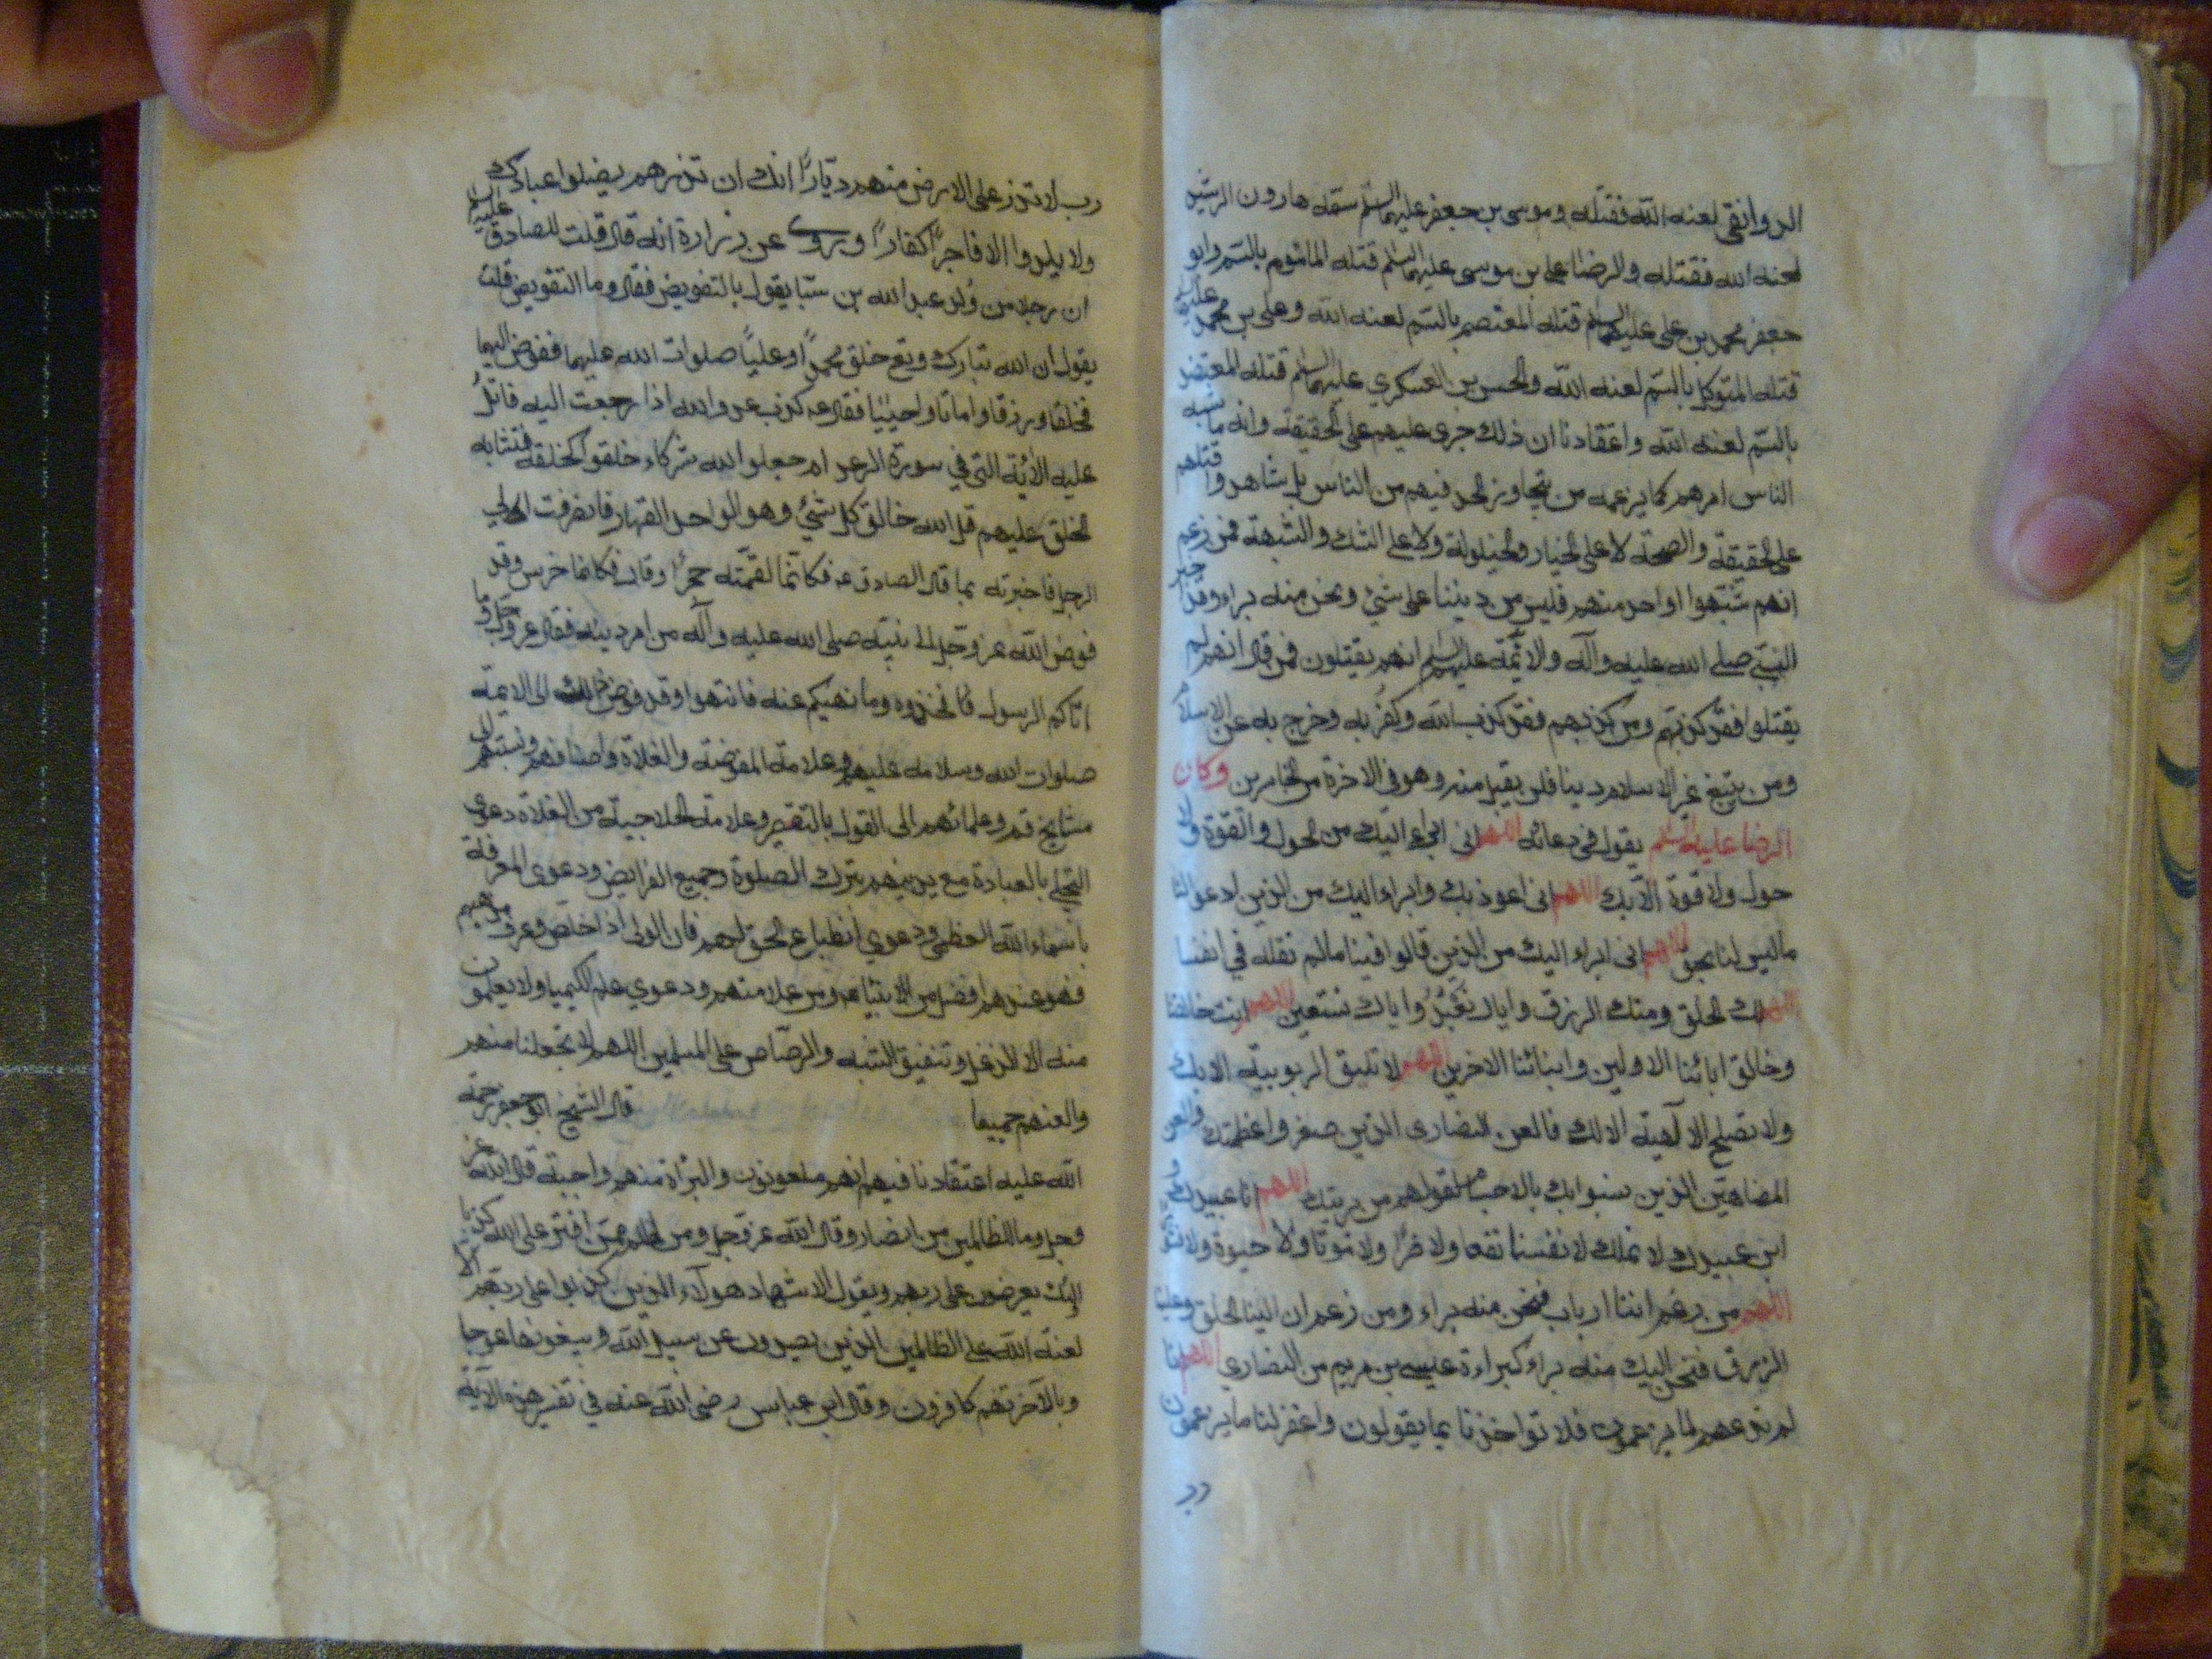 الدوانقي لعنه الله فقتله وموسى بن جعفر عليهما السلم سمّه هارون الرشيد
لعنه الله فقتله والرضا علي بن موسى عليهما السلم قتله المأموم بالسّم وابو
جعفر محمد بن على عليهما السلم قتله المعتصم بالسّم لعنه الله وعلى بن محمد عليه
قتله المتوكل بالسّم لعنه الله والحسن بن العسكري عليهما السلم قتله المعتضد
بالسّم لعنه الله واعتقادنا ان ذلك جرى عليهم على الحقيقة وانه ما شبه
الناس امرهم كما يزعمه من يتجاوز الحد فيهم من الناس بل شاهدوا قتلهم
على الحقيقة والصحة لا على الخيار والحيلولة ولا على الشك والشبهة فمن زعم
انهم شبّهوا او احد منهم فليس من ديننا على شئ ونحن منه براء وقد اخبر
النبي صلى الله عليه وآله والائمّة عليهم السلم انهم يقتلون فمن قال انهم لم
يقتلوا فقد كذبهم ومن كذبهم فقد كذب الله وكفر به وخرج به عن الاسلام
ومن يبتغ غير الاسلام دينا فلن يقبل منه وهو في الاخرة من الخاسرين وكان
الرضا عليه السلم يقول في دعائه اللهم انى ابراء اليك من الحول والقوة ولا
حول ولا قوة الّا بك اللهم انى اعوذ بك وابراء اليك من الذين ادعوا لنا
ما ليس لنا بحق اللهم انى ابراء اليك من الذين قالوا فينا ما لم نقله في انفسنا
اللهم لك الخلق ومنك الرزق واياك نعبد واياك نستعين اللهم انت خالقنا
وخالق ابائنا الاولين وابنائنا الاخرين اللهم لا تليق الربوبيّة الا بك
ولا تصلح الالهية الا لك فالعن النصارى الذين صغروا عظمتك والعن
المضاهئين الذين لقولهم من بريتك اللهم انا عبيدك و
ابن عبيدك لا نملك لانفسنا نفعا ولا ضرّا ولا موتا ولا حيوة ولا نشورا
اللهم من زعم اننا ارباب فنحن منه براء ومن زعم ان الينا الخلق وعلينا
الرزق فنحن اليك منه براء كبراءة عيسى بن مريم من النصارى اللهم انا
لم ندعهم لما يزعمون فلا تواخذنا بما يقولون واغفر لنا ما يزعمون
رب
رب لا تذر على الارض منهم ديّارًا انك ان تذرهم يضلوا عبادك
ولا يلدوا الا فاجرًا كفارًا وروى عن زرارة انه قال قلت للصادق عليه السلم
ان رجلا من ولد عبد الله بن سبا يقول بالتفويض فقال وما التفويض قلت
يقول ان الله تبارك وتع خلق محمدًا وعليًا صلوات الله عليهما ففوض اليهما
فخلقا ورزقا واماتا واحييا فقال ع كذب عدو الله اذا رجعت اليه فاتل
عليه الآية التي في سورة الرعد ام جعلوا لله شركاء خلقوا كخلقه فتشابه
الخلق عليهم قل الله خالق كل شئ وهو الواحد القهار فانصرفت الى
الرجل فاخبرته بما قال الصادق ع فكانّما لقمته حجرًا وقال فكانما خرس وقد
فوض الله عز وجل الى نبيّه صلى الله عليه وآله من امر دينه فقال عز وجل وما
اتاكم الرسول فخذوه وما نهيكم عنه فانتهوا وقد فوض ذلك الى الايمة
صلوات الله وسلامه عليهم وعلامة المفوضة والغلاة واصنافهم ونسبتهم
مشايخ قم وعلمائهم الى القول بالتقصير وعلامة الحلاجية من الغلاة دعوى
التجلي بالعبادة مع بترك الصلوة وجميع الفرايض ودعوى المعرفة
باسماء الله العظمى ودعوي انطباع الحق لهم فان الولى اذا اخلص وعرف مذهبهم
فهو عندهم افضل من الانبياء ع ومن علامتهم ودعوي علم الكيميا ولا يعلمون
منه الا الدغل وتنفيق الشبه والرصاص على المسلمين اللهم لا تجعلنا منهم
والعنهم جميعا قال الشيخ ابو جعفر رحمة
الله عليه اعتقادنا فيهم انهم ملعونون والبرأة منهم واجبة قال الله عز
وجل وما للظالمين من انصار وقال الله عز وجل ومن اظلم ممن افترى على الله كذبا
اولئك يعرضون على ربهم ويقول الاشهاد هولاء الذين كذبوا على ربهم الا
لعنة الله على الظالمين الذين يصدون عن سبيل الله ويبغونها عوجا
وبالآخرة هم كافرون وقال ابن عباس رضي الله عنه في تفسير هذه الآية